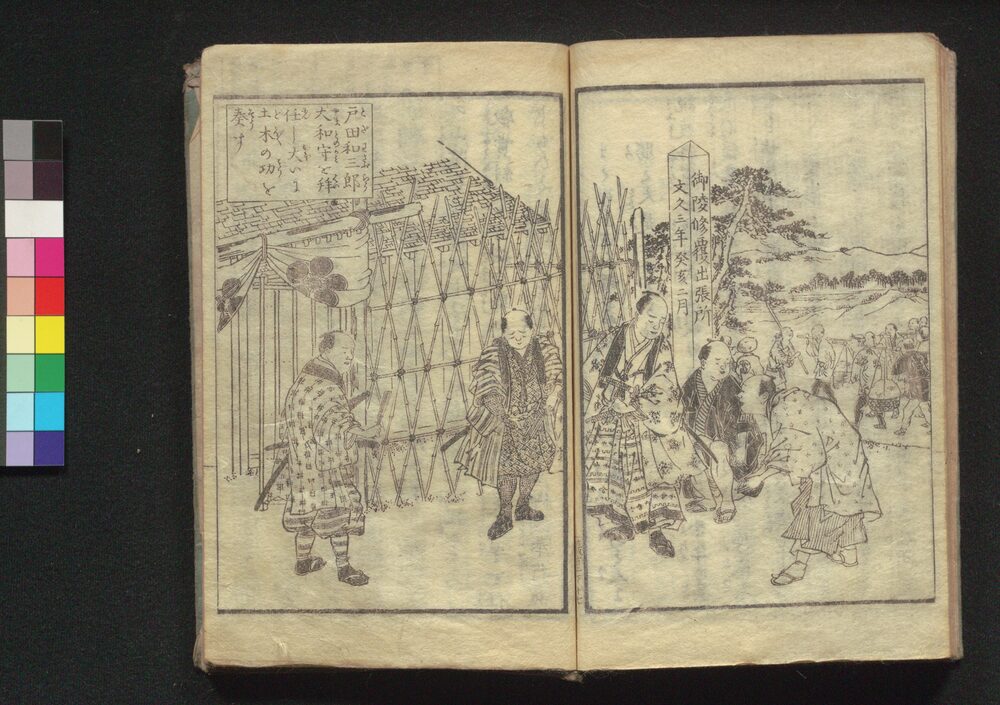 御陵修覆出張所
文久三年癸亥二月
戸田和三郎
大和守を拝
任し大いに
土木の功を
奏す